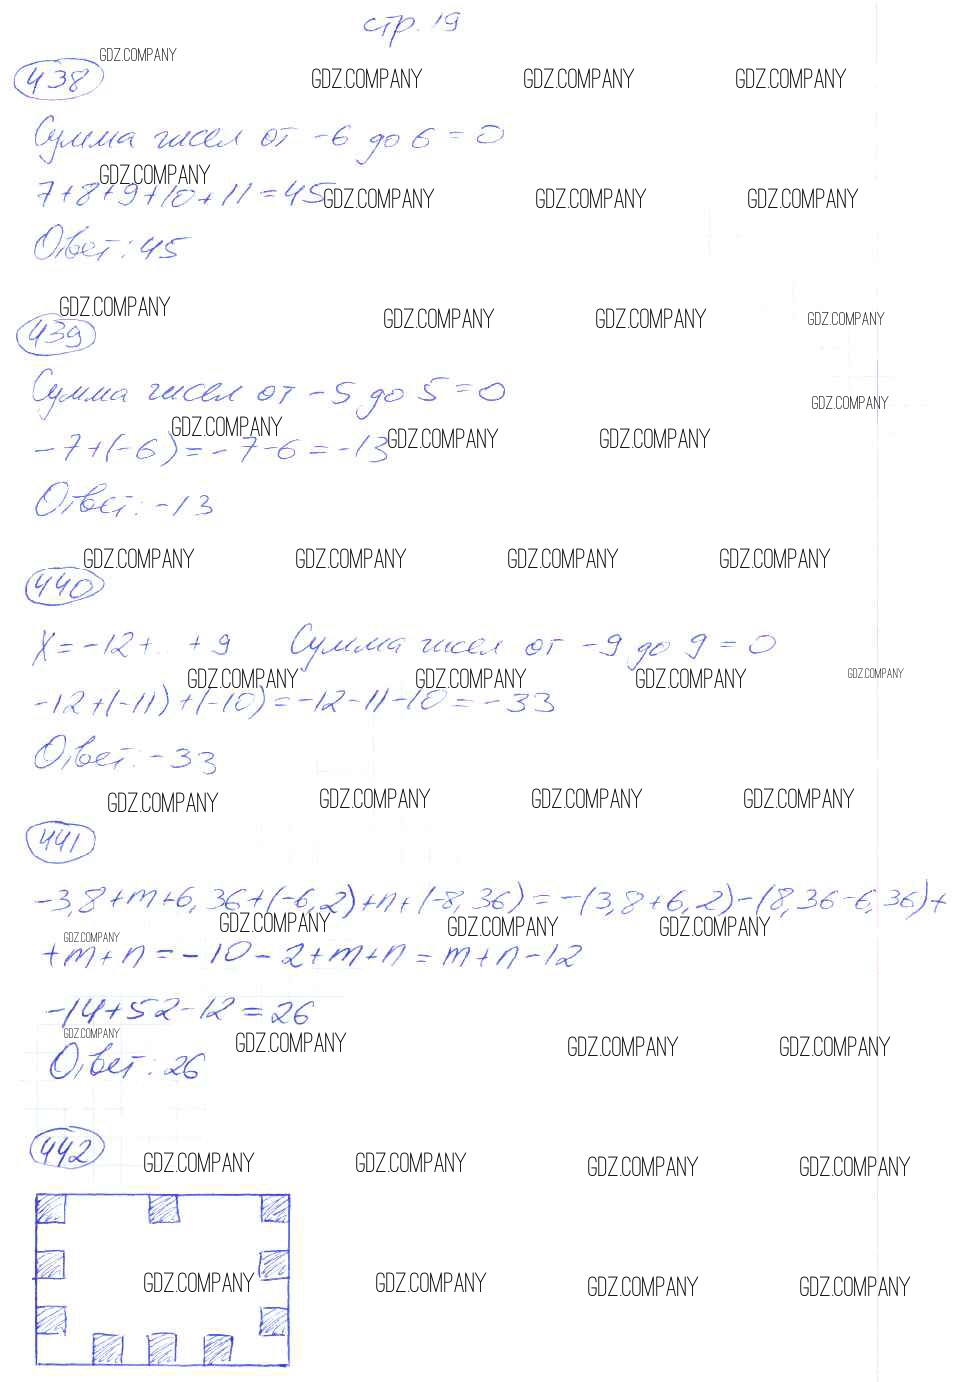 стр. 19
GDZ.COMPANY
438
GDZ.COMPANY GDZ.COMPANY GDZ.COMPANY
Сумма чисел от -6 до 6 = 0
GDZ.COMPANY
7+8+9+10+11=45
GDZ.COMPANY GDZ.COMPANY GDZ.COMPANY
Ответ: 45
GDZ.COMPANY GDZ.COMPANY GDZ.COMPANY GDZ.COMPANY
439
Сумма чисел от -5 до 5 = 0
GDZ.COMPANY
GDZ.COMPANY GDZ.COMPANY GDZ.COMPANY
-7+(-6)=-7-6=-13
Ответ: -13
GDZ.COMPANY GDZ.COMPANY GDZ.COMPANY GDZ.COMPANY
440
X=-12+.. +9 Сумма чисел от -9 до 9 = 0
GDZ.COMPANY GDZ.COMPANY GDZ.COMPANY GDZ.COMPANY
-12+(-11)+(-10)=-12-11-10=-33
Ответ: -33
GDZ.COMPANY GDZ.COMPANY GDZ.COMPANY GDZ.COMPANY
441
-3,8+m+6,36+(-6,2)+n+(-8,36)=-(3,8+6,2)-(8,36-6,36)+
GDZ.COMPANY GDZ.COMPANY GDZ.COMPANY GDZ.COMPANY
+m+n=-10-2+m+n=m+n-12
-14+52-12=26
GDZ.COMPANY GDZ.COMPANY GDZ.COMPANY GDZ.COMPANY
Ответ: 26
442
GDZ.COMPANY GDZ.COMPANY GDZ.COMPANY GDZ.COMPANY
GDZ.COMPANY GDZ.COMPANY GDZ.COMPANY GDZ.COMPANY